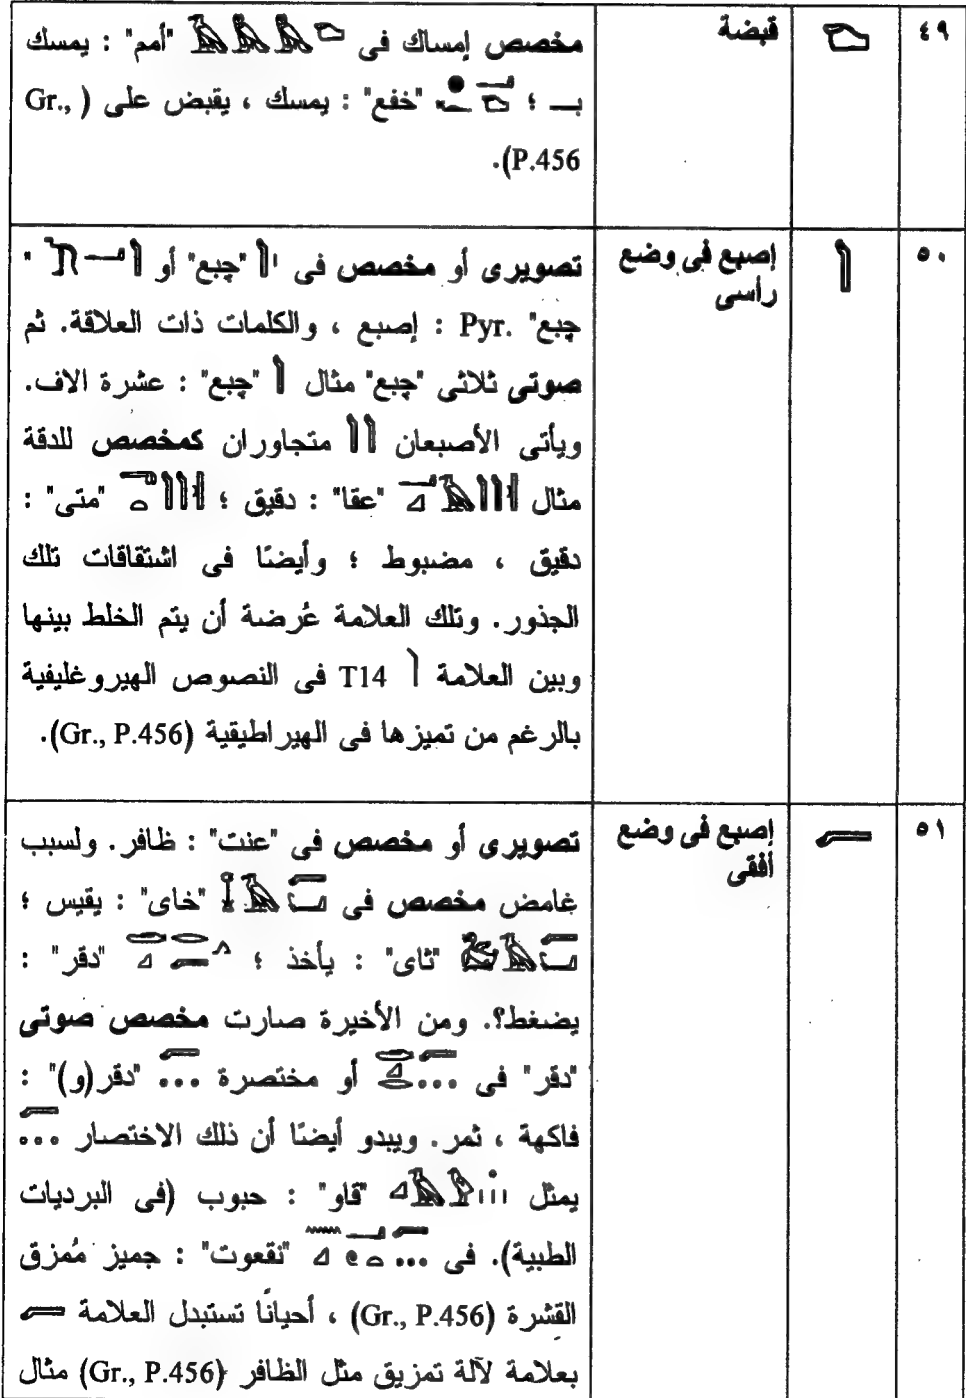 ٤٩
قبضة
مخصص إمساك فى 𓂧𓅓𓅓𓅓 "أمم" : يمسك
بـ ؛ "خفع" : يمسك ، يقبض على (Gr.,
P.456).
٥٠
إصبع فى وضع
راسى
تصويرى أو مخصص فى "چبع" أو "
چبع" Pyr. : إصبع ، والكلمات ذات العلاقة. ثم
صوتى ثلاثى "چبع" مثال 𓂭 "چبع" : عشرة الاف.
ويأتى الأصبعان 𓂭𓂭 متجاوران كمخصص للدقة
مثال "عقا" : دقيق ؛ "متى" :
دقيق ، مضبوط ؛ وأيضًا فى اشتقاقات تلك
الجذور. وتلك العلامة عُرضة أن يتم الخلط بينها
وبين العلامة 𓌙 T14 فى النصوص الهيروغليفية
بالرغم من تميزها فى الهيراطيقية (Gr., P.456).
٥١
إصبع فى وضع
أفقى
تصويرى أو مخصص فى "عنت" : ظافر. ولسبب
غامض مخصص فى "خاى" : يقيس ؛
"ثاى" : يأخذ ؛ "دقر" :
يضغط؟. ومن الأخيرة صارت مخصص صوتى
"دقر" فى أو مختصرة "دقر(و)" :
فاكهة ، ثمر. ويبدو أيضًا أن ذلك الاختصار
يمثل "قاو" : حبوب (فى البرديات
الطبية). فى "نقعوت" : جميز مُمزق
القشرة (Gr., P.456) ، أحيانًا تستبدل العلامة
بعلامة لآلة تمزيق مثل الظافر (Gr., P.456) مثال